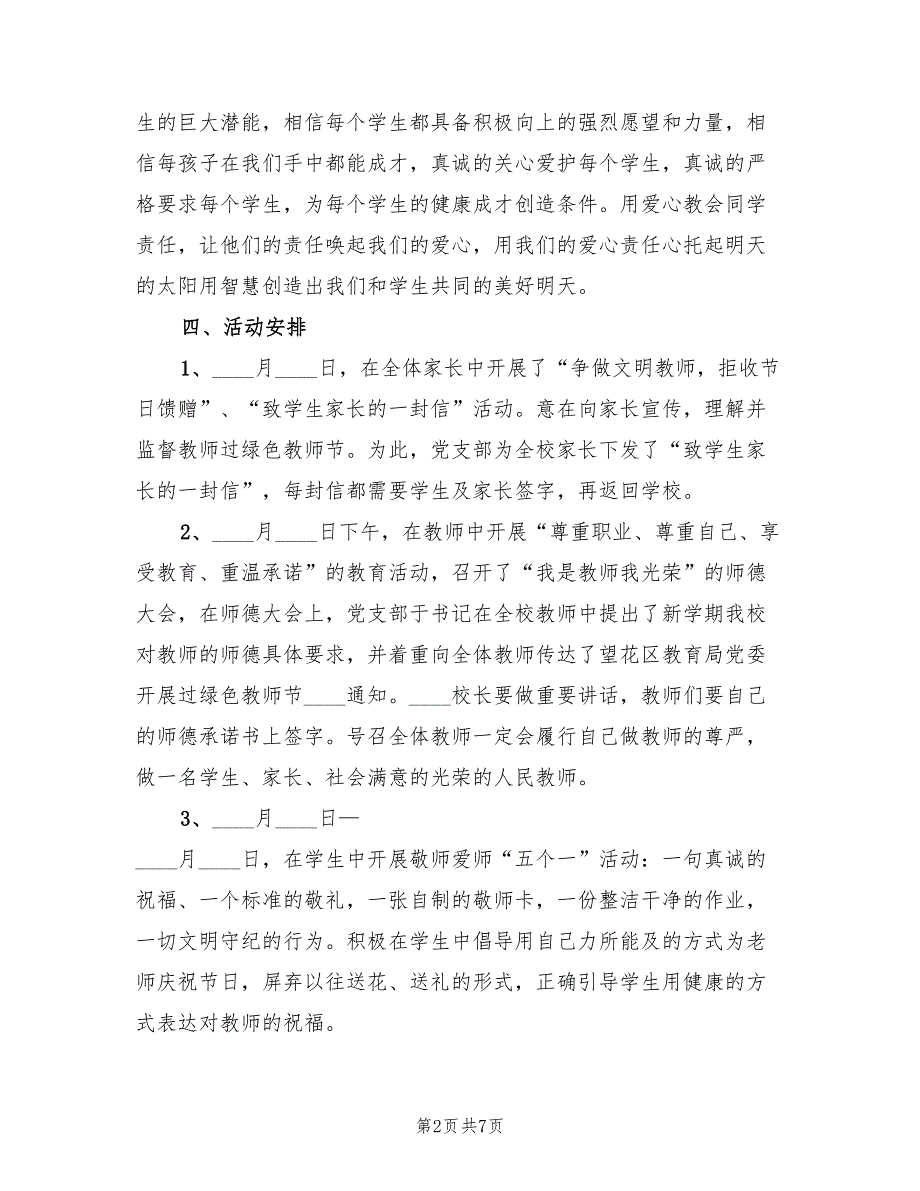 生的巨大潜能，相信每个学生都具备积极向上的强烈愿望和力量，相
信每孩子在我们手中都能成才，真诚的关心爱护每个学生，真诚的严
格要求每个学生，为每个学生的健康成才创造条件。用爱心教会同学
责任，让他们的责任唤起我们的爱心，用我们的爱心责任心托起明天
的太阳用智慧创造出我们和学生共同的美好明天。
四、活动安排
1、____月____日，在全体家长中开展了“争做文明教师，拒收节
日馈赠”、“致学生家长的一封信”活动。意在向家长宣传，理解并
监督教师过绿色教师节。为此，党支部为全校家长下发了“致学生家
长的一封信”，每封信都需要学生及家长签字，再返回学校。
2、____月____日下午，在教师中开展“尊重职业、尊重自己、享
受教育、重温承诺”的教育活动，召开了“我是教师我光荣”的师德
大会，在师德大会上，党支部于书记在全校教师中提出了新学期我校
对教师的师德具体要求，并着重向全体教师传达了望花区教育局党委
开展过绿色教师节____通知。____校长要做重要讲话，教师们要自己
的师德承诺书上签字。号召全体教师一定会履行自己做教师的尊严，
做一名学生、家长、社会满意的光荣的人民教师。
3、____月____日—
____月____日，在学生中开展敬师爱师“五个一”活动：一句真诚的
祝福、一个标准的敬礼，一张自制的敬师卡，一份整洁干净的作业，
一切文明守纪的行为。积极在学生中倡导用自己力所能及的方式为老
师庆祝节日，屏弃以往送花、送礼的形式，正确引导学生用健康的方
式表达对教师的祝福。
第2页共7页